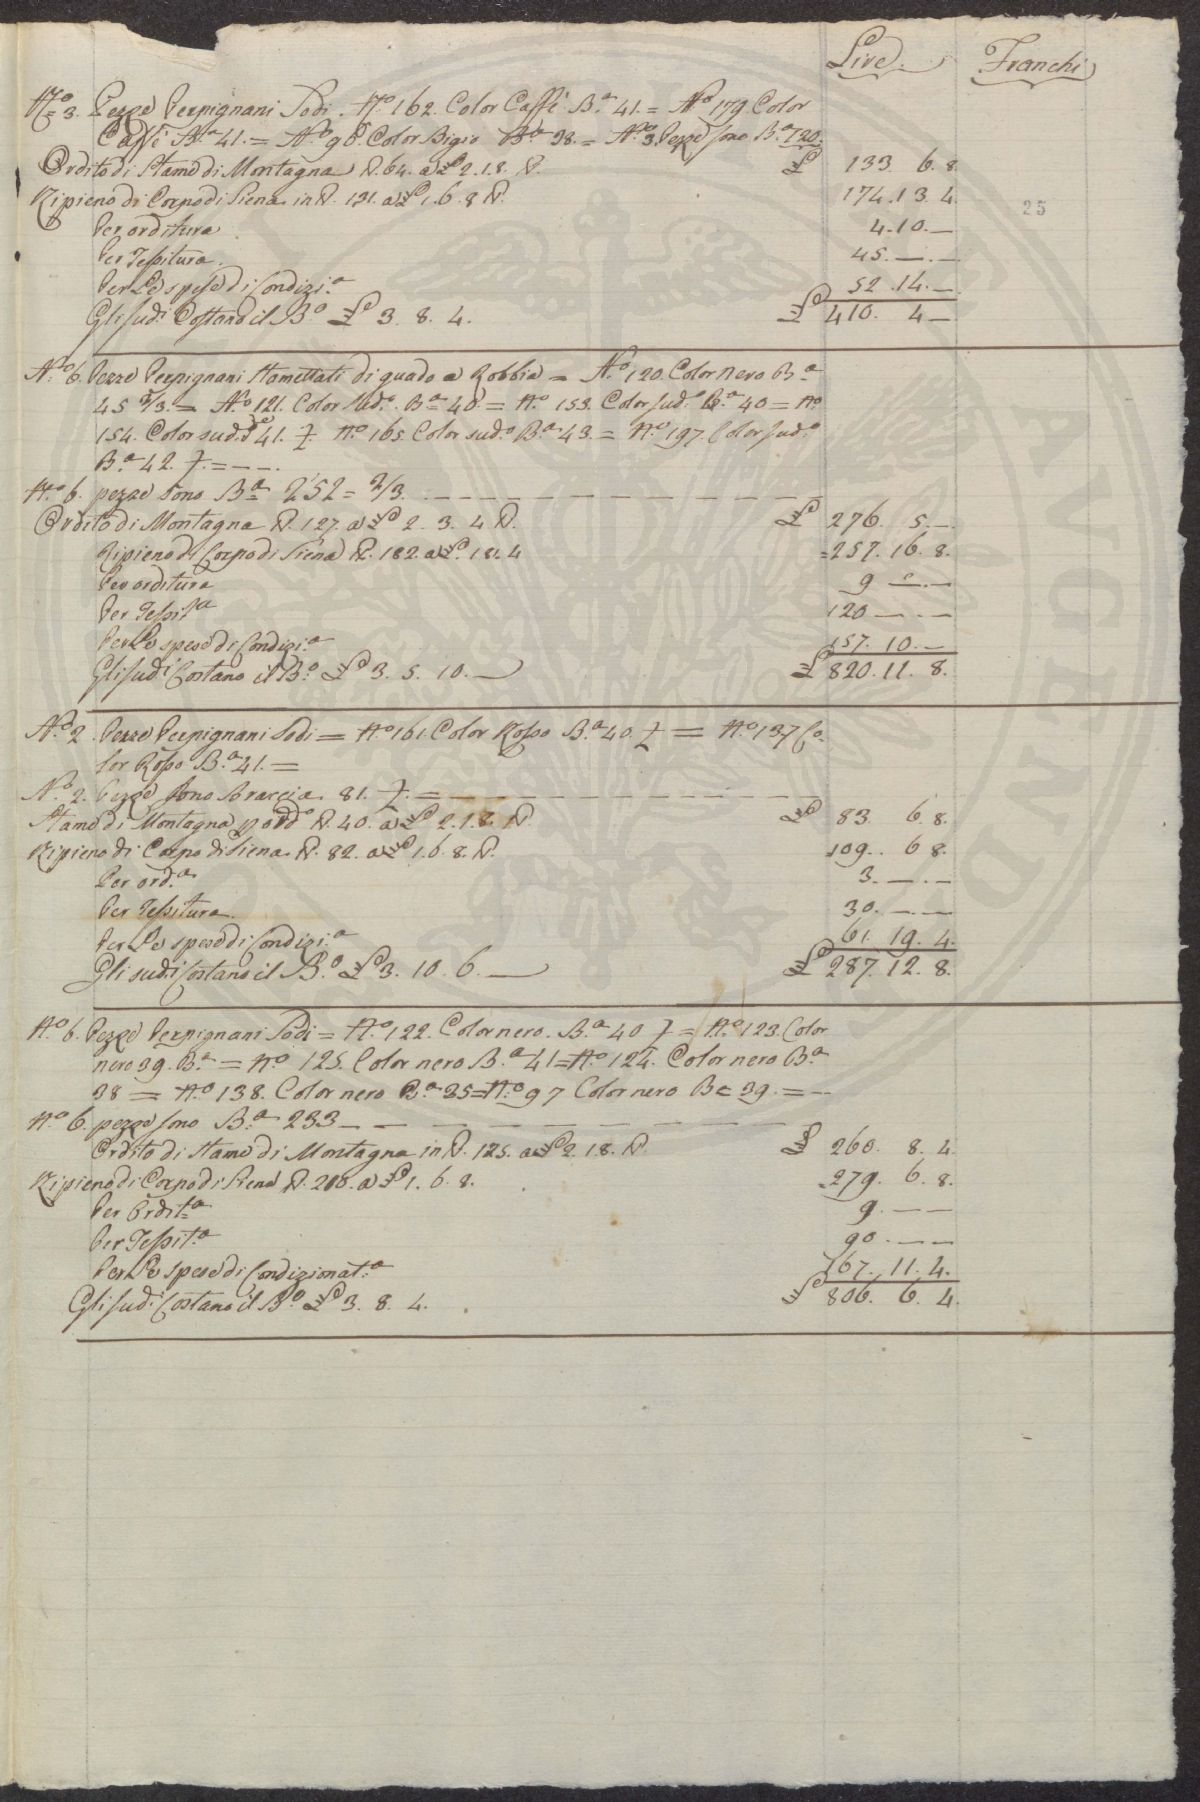 Lire. Franchi
N.º 3. Pezze Perpignani Sodi. N.º 162. Color Caffè B.ª 41. = N.º 179. Color
Caffè B.ª 41. = N.º 98. Color Bigio B.ª 38. = N.º 3. Pezze sono B.ª 120.
Ordito di Stame di Montagna 64. a £ 2.1.8. £ 133. 6. 8.
Ripieno di Corpo di Siena in 131. a £ 1.6.8 174. 13. 4.
25
Per orditura 4. 10. —
Per Tessitura. 45. — . —
Per Le spese di Condizi.ª 52. 14. —
Gli sud.i Costano il B.º £ 3. 8. 4. £ 410. 4 —
N.º 6. Pezze Perpignani Stomettati di guado e Robbia = N.º 120. Color nero B.ª
45 2/3. = N.º 121. Color sud.º B.ª 40 = N.º 153. Color sud.º B.ª 40 = N.º
154. Color sud.º 41. N.º 165. Color sud.º B.ª 43. = N.º 197. Color sud.º
B.ª 42. = — — .
N.º 6. pezze sono B.ª 252 = 2/3. — — — — — — — — — — —
Ordito di Montagna 127. a £ 2. 3. 4 £ 276. 5. —
Ripieno di Corpo di Siena 182. a £. 1 8. 4 = 257. 16. 8.
Per orditura 9 — . —
Per Tessit.ª 120 — . —
Per Le spese di Condizi.ª 157. 10. —
Gli sud.i Costano il B.º £ 3. 5. 10. — £ 820. 11. 8.
N.º 2. Pezze Perpignani Sodi = N.º 161. Color Rosso B.ª 40. = N.º 137 Co-
lor Rosso B.ª 41. =
N.º 2. Pezze sono Braccia. 81. = — — — — — — — — —
Stame di Montagna p ord.º 40. a £ 2.1.8. £ 83. 6. 8.
Ripieno di Corpo di Siena. 82. a £ 1.6.8. 109. 6 8.
Per ord.ª 3. — . —
Per Tessitura. 30. — . —
Per Le spese di Condizi.ª 61. 19. 4.
Gli sud.i Costano il B.º £ 3. 10. 6. — £ 287. 12. 8.
N.º 6. Pezze Perpignani Sodi = N.º 122. Color nero. B.ª 40 = N.º 123. Color
nero 39. B.ª = N.º 125. Color nero B.ª 41 = N.º 124. Color nero B.ª
38 = N.º 138. Color nero B.ª 35 = N.º 97 Color nero B.ª 39. = —
N.º 6. pezze sono B.ª 233 — — — — — — — — —
Ordito di Stame di Montagna in 125. a £ 2. 1 8. £ 260. 8. 4.
Ripieno di Corpo di Siena 206. a £ 1. 6. 8. 279. 6. 8.
Per Ordit.ª 9. — —
Per Tessit.ª 90. — —
Per Le spese di Condizionat.ª 167. 11. 4.
Gli sud.i Costano il B.º £ 3. 8. 4. £ 806. 6. 4.